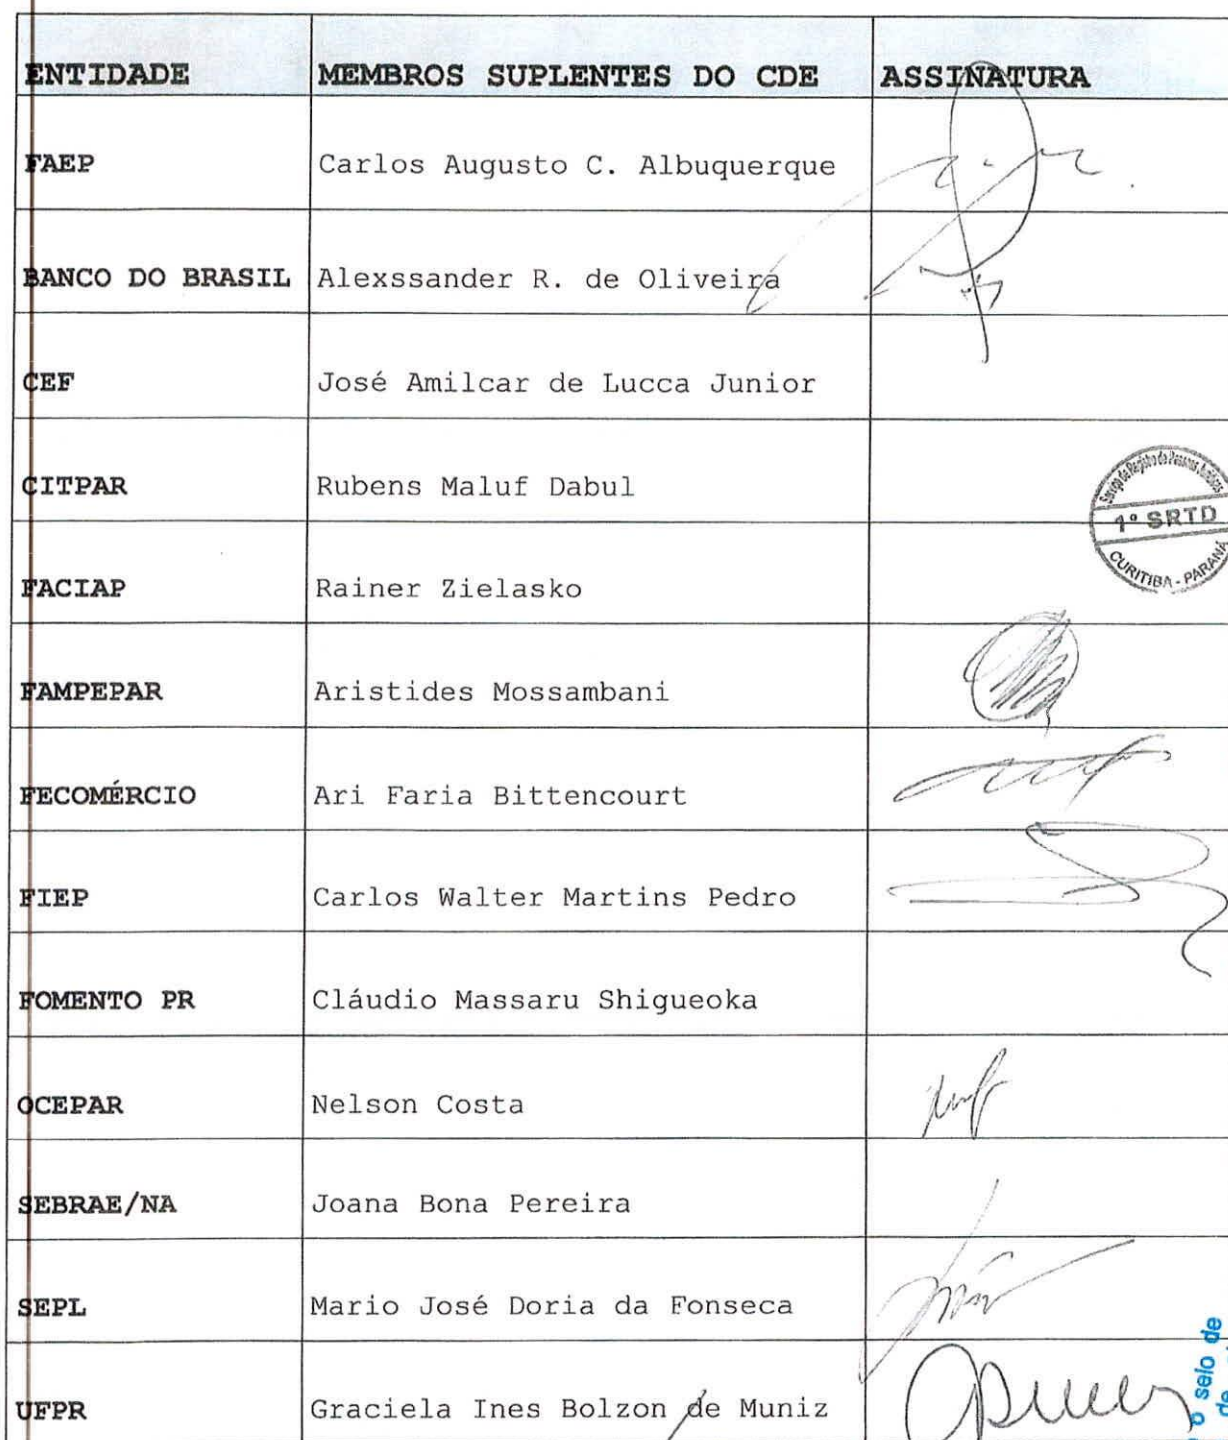 ENTIDADE MEMBROS SUPLENTES DO CDE ASSINATURA
FAEP Carlos Augusto C. Albuquerque
BANCO DO BRASIL Alexssander R. de Oliveira
CEF José Amilcar de Lucca Junior
CITPAR Rubens Maluf Dabul
Serviço de Registro de Pessoas Jurídicas
1º SRTD
CURITIBA - PARANÁ
FACIAP Rainer Zielasko
FAMPEPAR Aristides Mossambani
FECOMÉRCIO Ari Faria Bittencourt
FIEP Carlos Walter Martins Pedro
FOMENTO PR Cláudio Massaru Shigueoka
OCEPAR Nelson Costa
SEBRAE/NA Joana Bona Pereira
SEPL Mario José Doria da Fonseca
UFPR Graciela Ines Bolzon de Muniz
o selo de
de